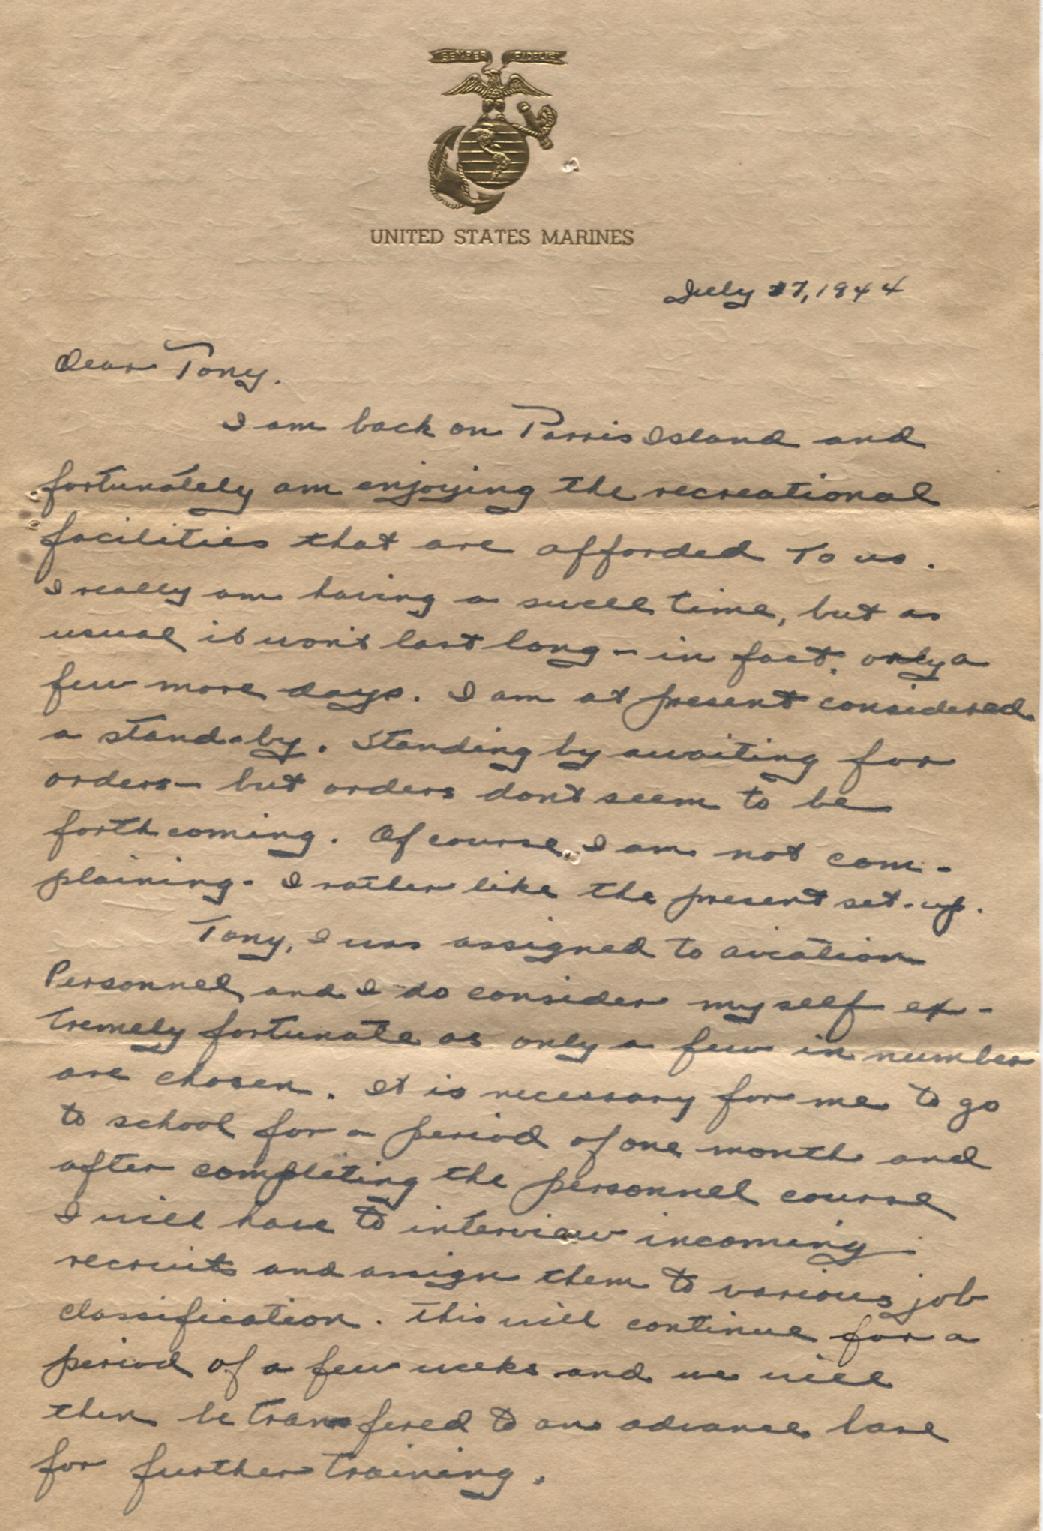 SEMPER FIDELIS
UNITED STATES MARINES
July 27, 1944
Dear Tony.
I am back on Parris Island and
fortunately am enjoying the recreational
facilities that are afforded to us.
I really am having a swell time, but as
usual it won't last long - in fact, only a
few more days. I am at present considered
a stand-by. Standing by awaiting for
orders - but orders dont seem to be
forth coming. Of course, I am not com-
plaining - I rather like the present set-up.
Tony, I was assigned to aviation
Personnel, and I do consider myself ex-
tremely fortunate as only a few in number
are chosen. It is necessary for me to go
to school for a period of one month and
after completing the personnel course
I will have to interview incoming
recruits and assign them to various job
classification. This will continue for a
period of a few weeks and we will
then be transfered to an advance base
for further training.